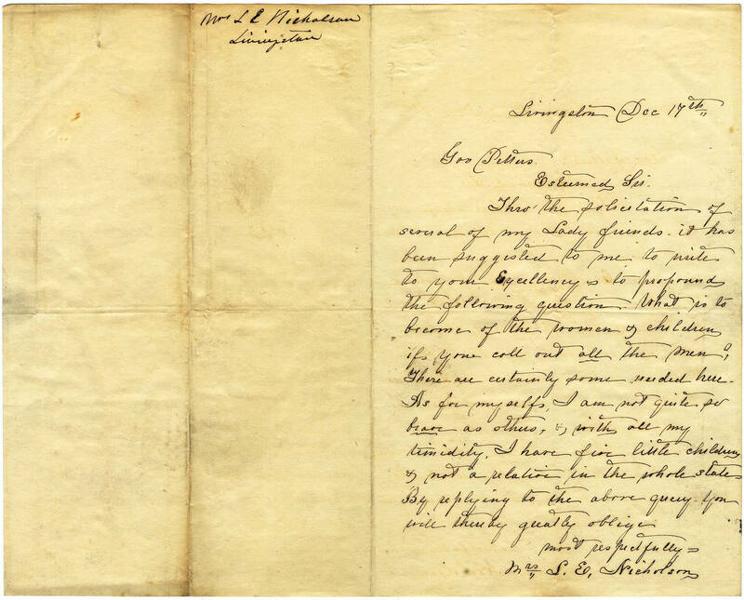 Mrs L E Nicholson
Livingston
Livingston Dec 17th
Gov Pettus.
Esteemed Sir.
Thro' the solicitation of
several of my Lady friends. it has
been suggested to me to write
to your Excellency & to propound
the following question What is to
become of the women & children
if you call out all the men,
There are certainly some needed here.
As for myself, I am not quite so
brave as others, & with all my
timidity, I have five little children
& not a relation in the whole state
By replying to the above query. You
will thereby greatly oblige
most respectfully
Mrs L. E, Nicholson